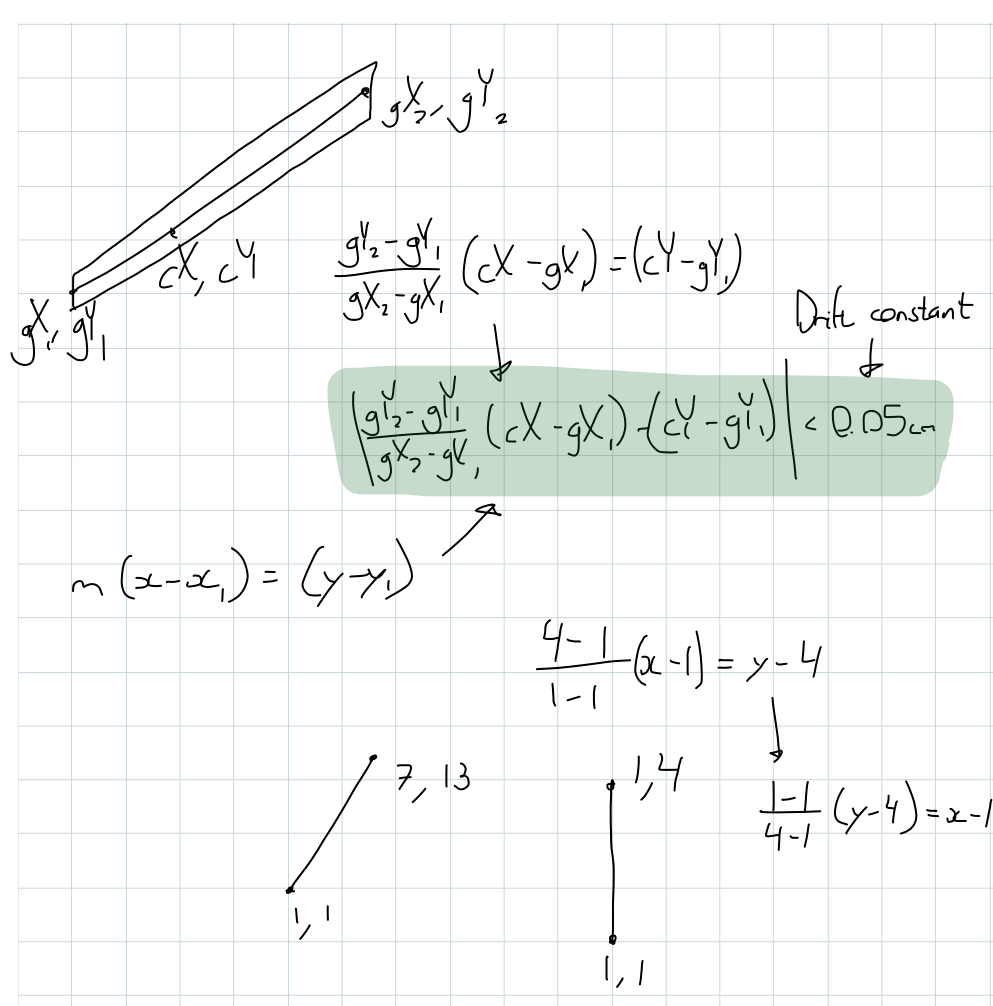 gX₂, gY₂
cX, cY
gX₁, gY₁
(gY₂-gY₁)/(gX₂-gX₁) (cX-gX₁) = (cY-gY₁)
Drift constant
|(gY₂-gY₁)/(gX₂-gX₁) (cX-gX₁) - (cY-gY₁)| < 0.05cm
m(x-x₁) = (y-y₁)
(4-1)/(1-1) (x-1) = y-4
7, 13
1,4
(1-1)/(4-1) (y-4) = x-1
1, 1
1, 1